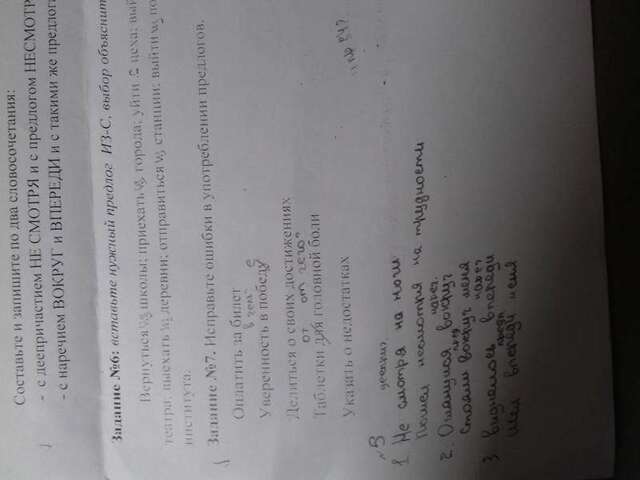 Составьте и запишите по два словосочетания:
- с деепричастием НЕ СМОТРЯ и с предлогом НЕСМОТР
- с наречием ВОКРУГ и ВПЕРЕДИ и с такими же предлога
Задание №6: вставьте нужный предлог ИЗ-С, выбор объяснит
Вернуться из школы; приехать из города; уйти с цеха; вый
театра; выехать из деревни; отправиться из станции; выйти из по
института.
Задание №7. Исправьте ошибки в употреблении предлогов.
Оплатить за билет
в чем?
Уверенность в победу е
Делиться о своих достижениях
от от чего?
Таблетки для головной боли
Указать о недостатках
на
№3
дееприч.
1 Не смотря на ноги
Пошел несмотря на трудности
нареч.
2. Оглянулся вокруг
Стояли вокруг меня
3. Виднелось впереди
предл
Шел впереди меня